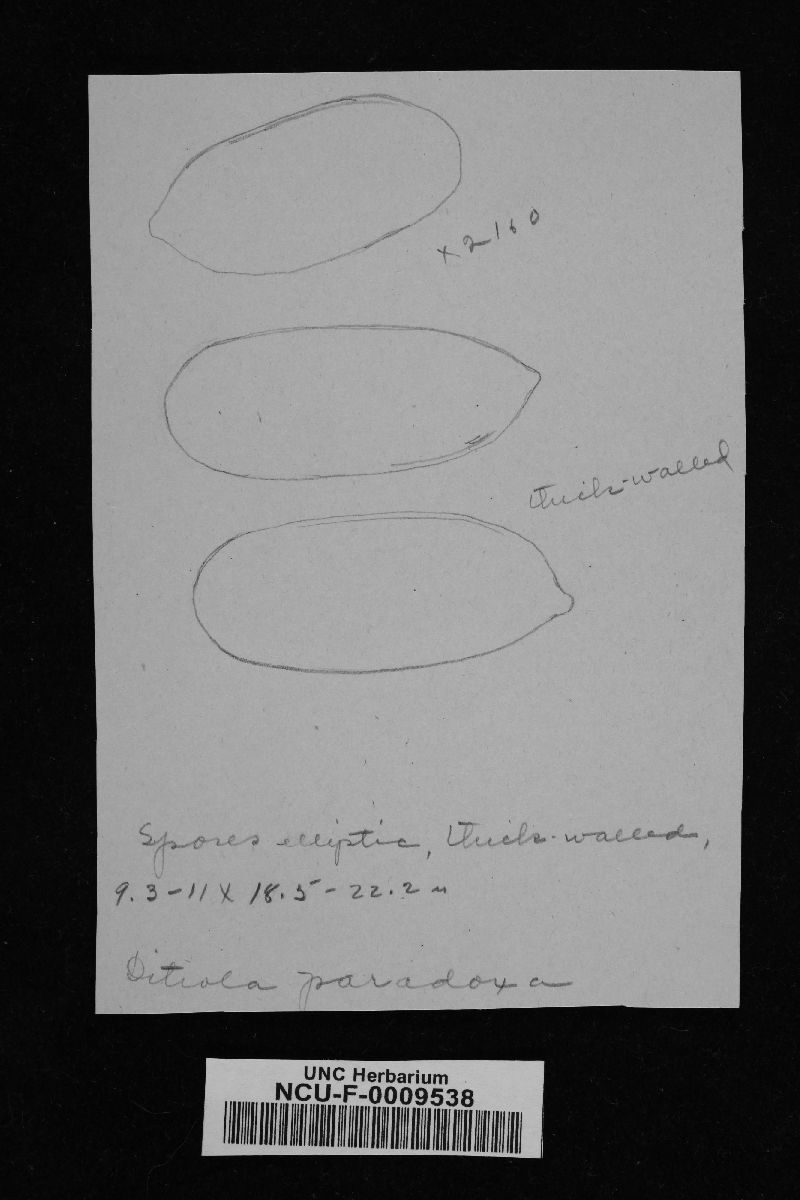 x 2160
thick-walled
Spores elliptic, thick-walled,
9.3-11 x 18.5-22.2 u
Ditiola paradoxa
UNC Herbarium
NCU-F-0009538